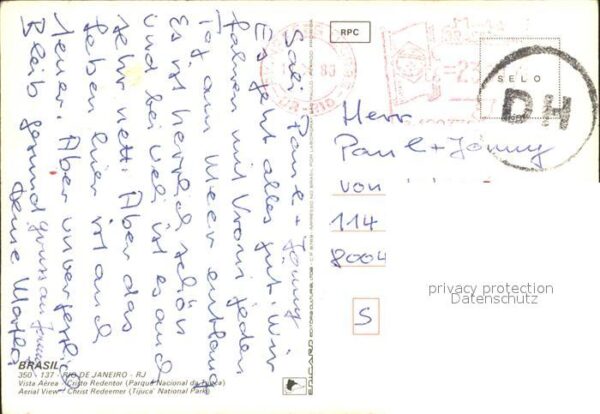 Sali Paul + Jönny
Es geht alles gut. Wir
fahren mit Vroni jeden
Tag am Meer entlang
Es ist herrlich schön
und bei Veli ist es auch
sehr nett. Aber das
Leben hier ist auch
teuer. Aber unvergesslich
Bleib gesund gruss an
Deine Martha
BRASIL
350 - 137 - RIO DE JANEIRO - RJ
Vista Aérea - Cristo Redentor (Parque Nacional da Tijuca)
Aerial View - Christ Redeemer (Tijuca' National Park)
RPC
SELO
DH
Herr
Paul + Jönny
von
114
8004
S
privacy protection
Datenschutz